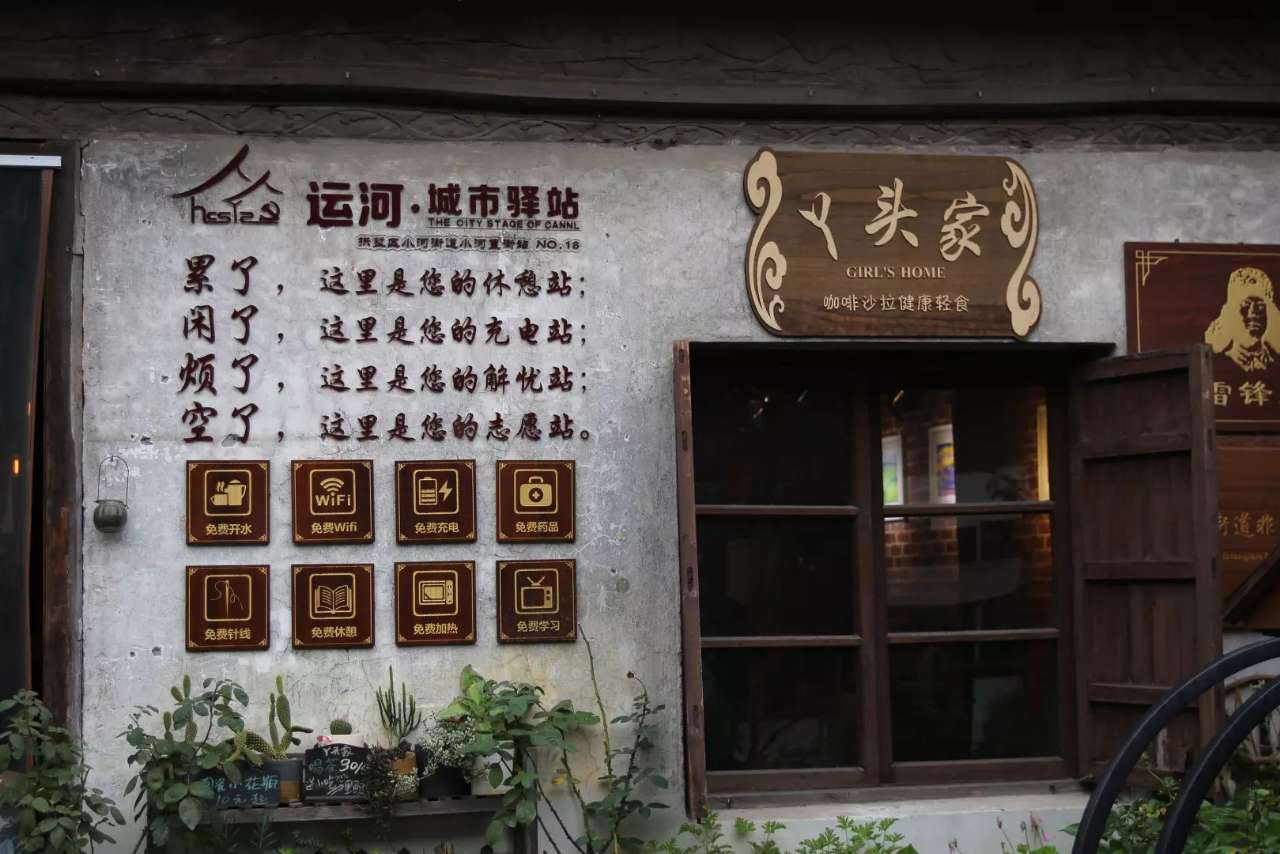 运河·城市驿站
THE CITY STAGE OF CANNL
拱墅区小河街道小河直街站 NO.18
累了，这里是您的休憩站；
闲了，这里是您的充电站；
烦了，这里是您的解忧站；
空了，这里是您的志愿站。
免费开水
WiFi
免费Wifi
免费充电
免费药品
免费针线
免费休憩
免费加热
免费学习
丫头家
GIRL'S HOME
咖啡沙拉健康轻食
雷锋
街道非
丫头家
喝茶30/
小花瓶
10元起